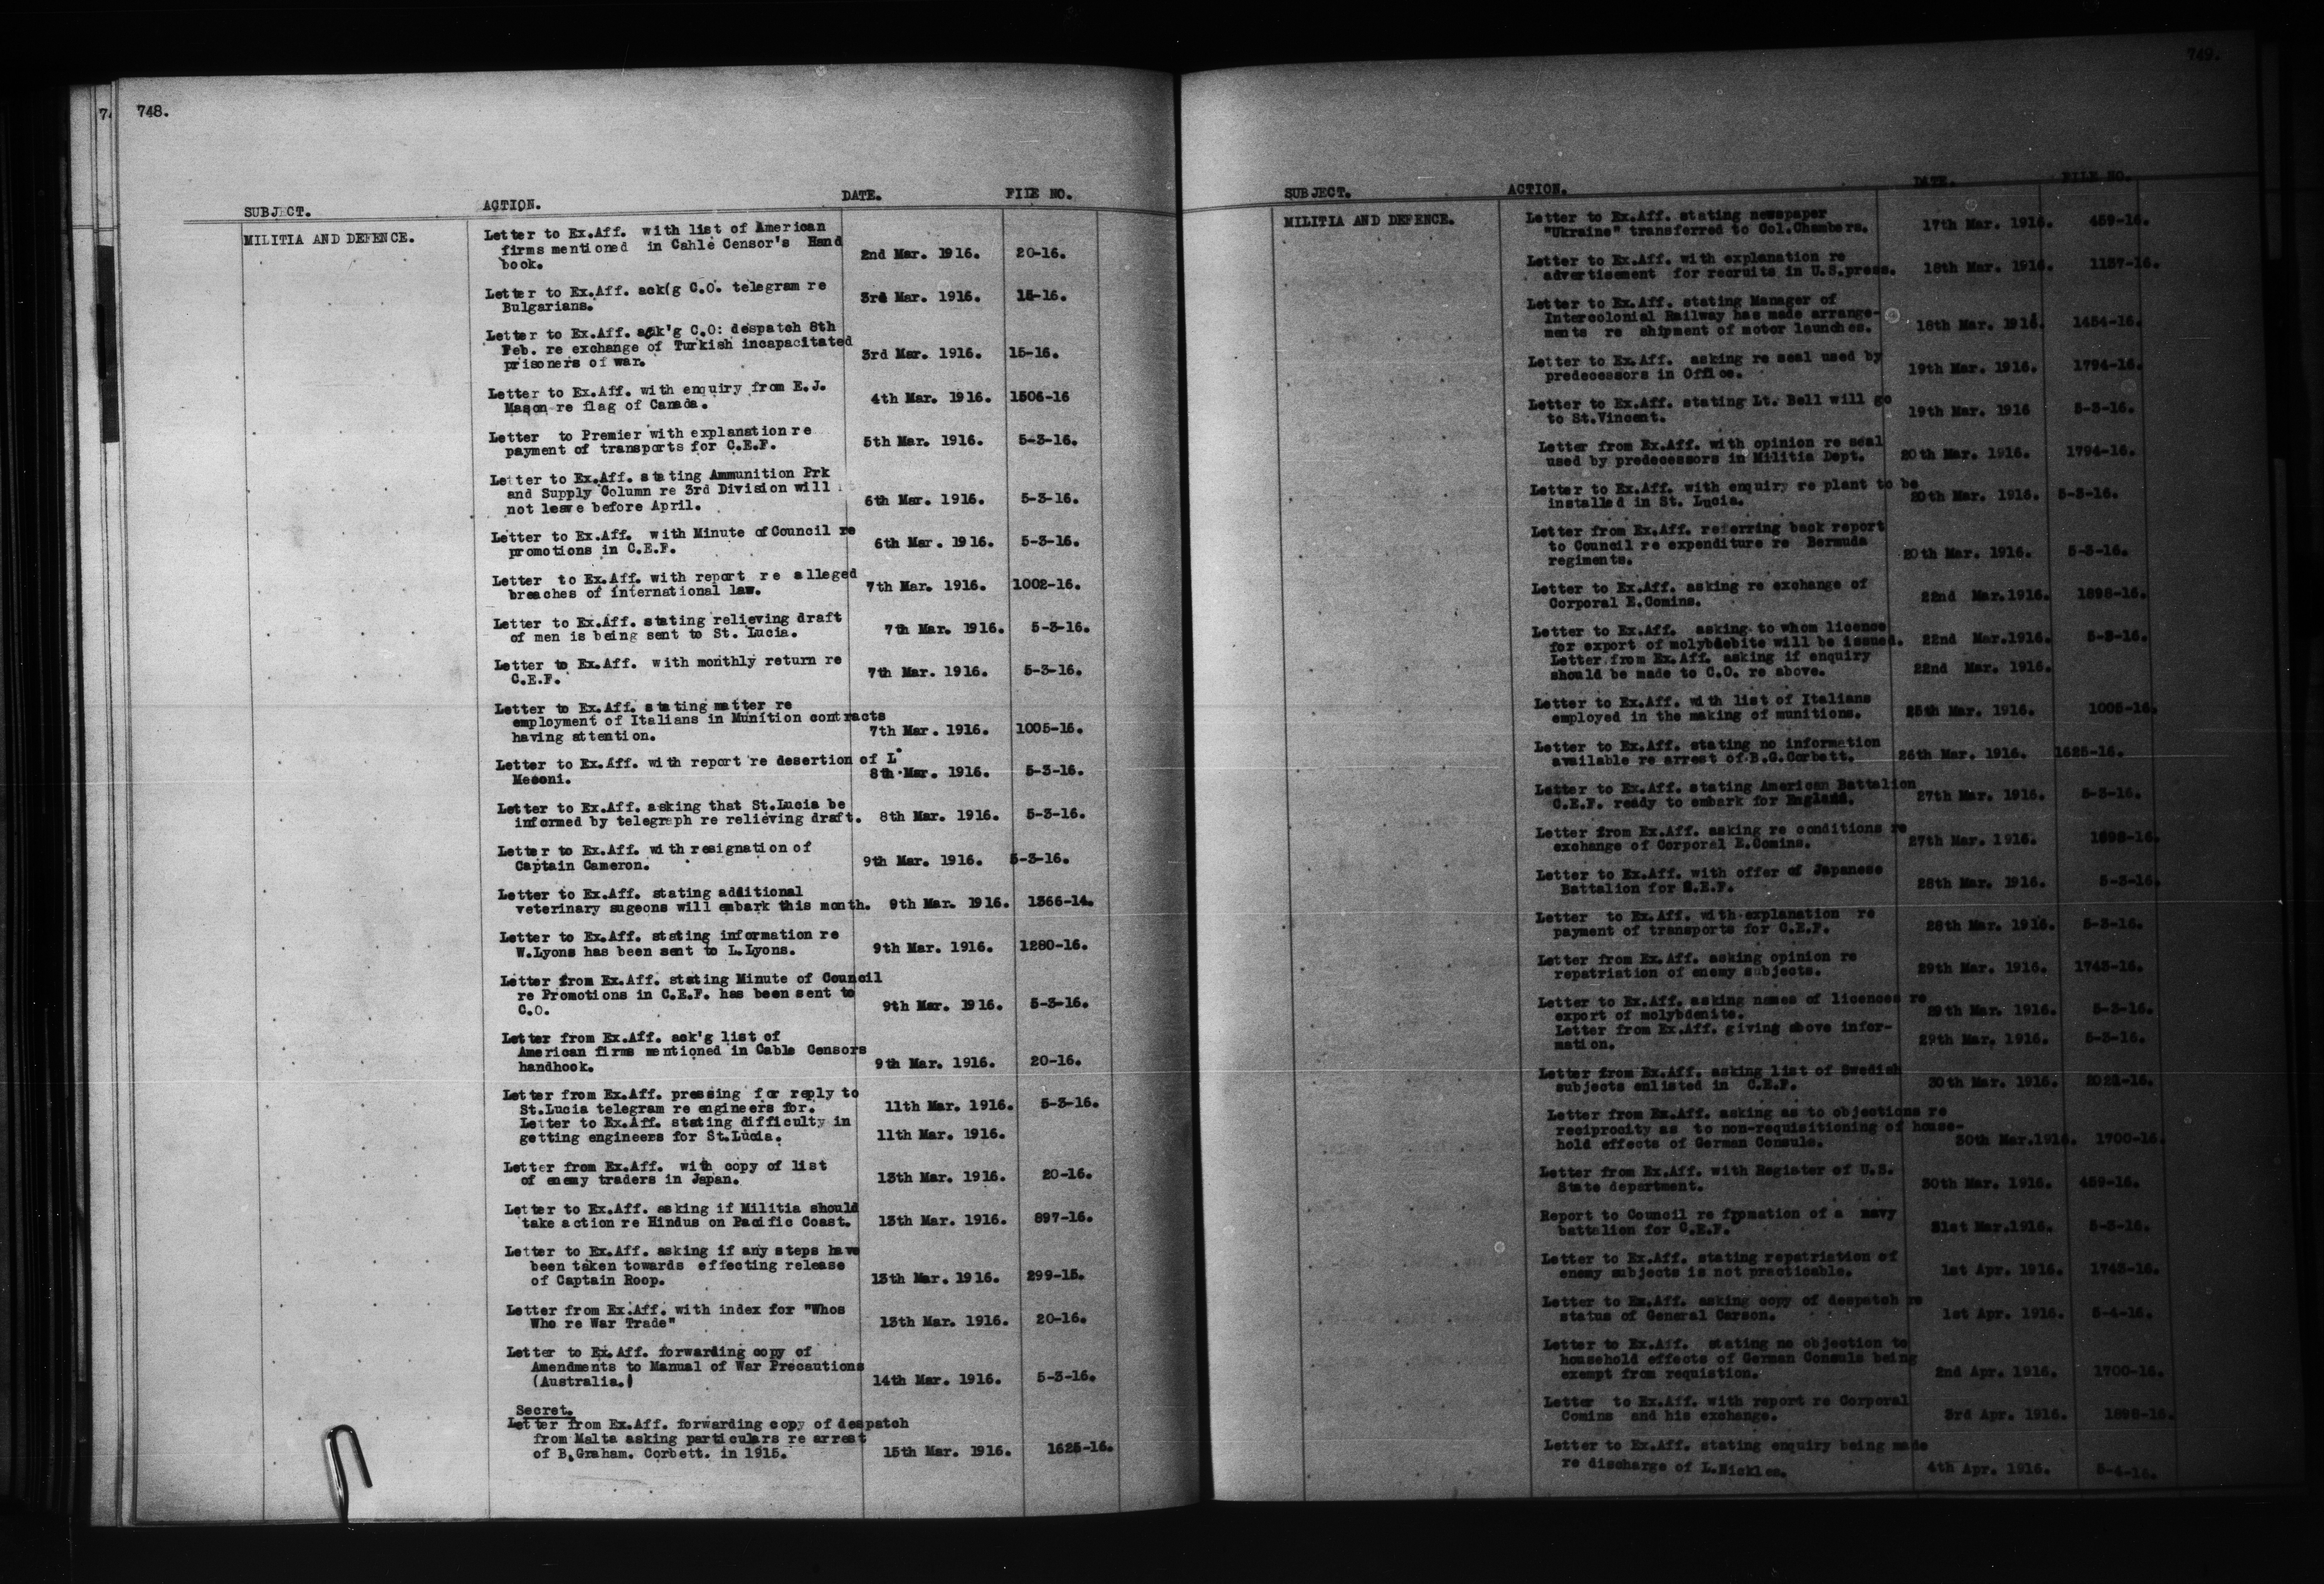 748.
SUBJECT. ACTION. DATE. FILE NO.
MILITIA AND DEFENCE.
Letter to Ex.Aff. with list of American
firms mentioned in Cahle Censor's Hand
book. 2nd Mar. 1916. 20-16.
Letter to Ex.Aff. ack(g C.O. telegram re
Bulgarians. 3rd Mar. 1916. 15-16.
Letter to Ex.Aff. ack'g C.O: despatch 8th
Feb. re exchange of Turkish incapacitated
prisoners of war. 3rd Mar. 1916. 15-16.
Letter to Ex.Aff. with enquiry from E.J.
Mason re flag of Canada. 4th Mar. 1916. 1506-16
Letter to Premier with explanation re
payment of transports for C.E.F. 5th Mar. 1916. 5-3-16.
Letter to Ex.Aff. stating Ammunition Prk
and Supply Column re 3rd Division will
not leave before April. 6th Mar. 1916. 5-3-16.
Letter to Ex.Aff. with Minute of Council re
promotions in C.E.F. 6th Mar. 1916. 5-3-16.
Letter to Ex.Aff. with report re alleged
breaches of international law. 7th Mar. 1916. 1002-16.
Letter to Ex.Aff. stating relieving draft
of men is being sent to St. Lucia. 7th Mar. 1916. 5-3-16.
Letter to Ex.Aff. with monthly return re
C.E.F. 7th Mar. 1916. 5-3-16.
Letter to Ex.Aff. stating matter re
employment of Italians in Munition contracts
having attention. 7th Mar. 1916. 1005-16.
Letter to Ex.Aff. with report re desertion of L
Mesoni. 8th Mar. 1916. 5-3-16.
Letter to Ex.Aff. asking that St.Lucia be
informed by telegraph re relieving draft. 8th Mar. 1916. 5-3-16.
Letter to Ex.Aff. with resignation of
Captain Cameron. 9th Mar. 1916. 5-3-16.
Letter to Ex.Aff. stating additional
veterinary sugeons will embark this month. 9th Mar. 1916. 1366-14.
Letter to Ex.Aff. stating information re
W.Lyons has been sent to L.Lyons. 9th Mar. 1916. 1280-16.
Letter from Ex.Aff. stating Minute of Council
re Promotions in C.E.F. has been sent to
C.O. 9th Mar. 1916. 5-3-16.
Letter from Ex.Aff. ack'g list of
American firms mentioned in Cable Censors
handhook. 9th Mar. 1916. 20-16.
Letter from Ex.Aff. pressing for reply to
St.Lucia telegram re engineers for. 11th Mar. 1916. 5-3-16.
Letter to Ex.Aff. stating difficulty in
getting engineers for St.Lucia. 11th Mar. 1916.
Letter from Ex.Aff. with copy of list
of enemy traders in Japan. 13th Mar. 1916. 20-16.
Letter to Ex.Aff. asking if Militia should
take action re Hindus on Pacific Coast. 13th Mar. 1916. 897-16.
Letter to Ex.Aff. asking if any steps have
been taken towards effecting release
of Captain Roop. 13th Mar. 1916. 299-15.
Letter from Ex.Aff. with index for "Whos
Who re War Trade" 13th Mar. 1916. 20-16.
Letter to Ex.Aff. forwarding copy of
Amendments to Manual of War Precautions
(Australia.) 14th Mar. 1916. 5-3-16.
Secret.
Letter from Ex.Aff. forwarding copy of despatch
from Malta asking particulars re arrest
of B.Graham. Corbett. in 1915. 15th Mar. 1916. 1625-16.
749.
SUBJECT. ACTION. DATE. FILE NO.
MILITIA AND DEFENCE.
Letter to Ex.Aff. stating newspaper
"Ukraine" transferred to Col.Chambers. 17th Mar. 1916. 459-16.
Letter to Ex.Aff. with explanation re
advertisement for recruits in U.S.press. 18th Mar. 1916. 1157-16.
Letter to Ex.Aff. stating Manager of
Intercolonial Railway has made arrange-
ments re shipment of motor launches. 18th Mar. 1916. 1454-16.
Letter to Ex.Aff. asking re seal used by
predecessors in Office. 19th Mar. 1916. 1794-16.
Letter to Ex.Aff. stating Lt. Bell will go
to St.Vincent. 19th Mar. 1916 5-3-16.
Letter from Ex.Aff. with opinion re seal
used by predecessors in Militia Dept. 20th Mar. 1916. 1794-16.
Letter to Ex.Aff. with enquiry re plant to be
installed in St. Lucia. 20th Mar. 1916. 5-3-16.
Letter from Ex.Aff. referring back report
to Council re expenditure re Bermuda
regiments. 20th Mar. 1916. 5-3-16.
Letter to Ex.Aff. asking re exchange of
Corporal E.Comins. 22nd Mar.1916. 1898-16.
Letter to Ex.Aff. asking to whom licence
for export of molybdebite will be issued. 22nd Mar.1916. 5-3-16.
Letter from Ex.Aff. asking if enquiry
should be made to C.O. re above. 22nd Mar. 1916.
Letter to Ex.Aff. with list of Italians
employed in the making of munitions. 25th Mar. 1916. 1005-16.
Letter to Ex.Aff. stating no information
available re arrest of B.G.Corbett. 26th Mar. 1916. 1625-16.
Letter to Ex.Aff. stating American Battalion
C.E.F. ready to embark for England. 27th Mar. 1916. 5-3-16.
Letter from Ex.Aff. asking re conditions re
exchange of Corporal E.Comins. 27th Mar. 1916. 1898-16.
Letter to Ex.Aff. with offer of Japanese
Battalion for C.E.F. 28th Mar. 1916. 5-3-16.
Letter to Ex.Aff. with explanation re
payment of transports for C.E.F. 28th Mar. 1916. 5-3-16.
Letter from Ex.Aff. asking opinion re
repatriation of enemy subjects. 29th Mar. 1916. 1743-16.
Letter to Ex.Aff. asking names of licences re
export of molybdenite. 29th Mar. 1916. 5-3-16.
Letter from Ex.Aff. giving above infor-
mation. 29th Mar. 1916. 5-3-16.
Letter from Ex.Aff. asking list of Swedish
subjects enlisted in C.E.F. 30th Mar. 1916. 2021-16.
Letter from Ex.Aff. asking as to objections re
reciprocity as to non-requisitioning of house-
hold effects of German Consuls. 30th Mar.1916. 1700-16.
Letter from Ex.Aff. with Register of U.S.
State department. 30th Mar. 1916. 459-16.
Report to Council re fromation of a navy
battalion for C.E.F. 31st Mar.1916. 5-3-16.
Letter to Ex.Aff. stating repatriation of
enemy subjects is not practicable. 1st Apr. 1916. 1743-16.
Letter to Ex.Aff. asking copy of despatch re
status of General Carson. 1st Apr. 1916. 5-4-16.
Letter to Ex.Aff. stating no objection to
household effects of German Consuls being
exempt from requistion. 2nd Apr. 1916. 1700-16.
Letter to Ex.Aff. with report re Corporal
Comins and his exchange. 3rd Apr. 1916. 1898-16.
Letter to Ex.Aff. stating enquiry being made
re discharge of L.Nickles. 4th Apr. 1916. 5-4-16.